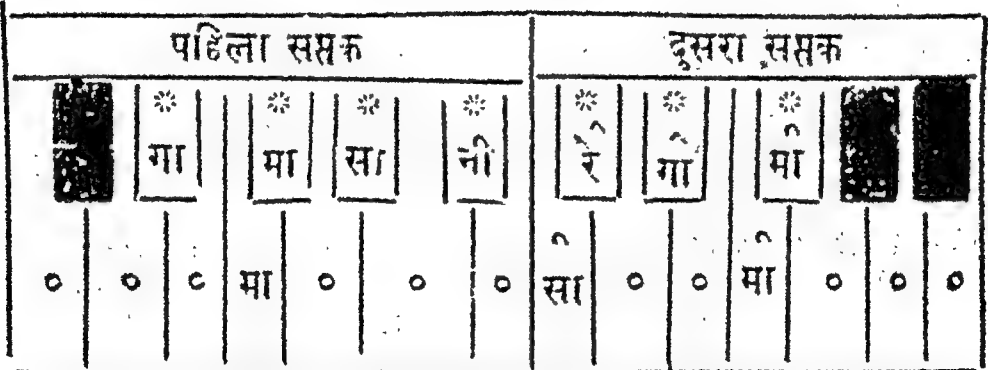 पहिला सप्तक दूसरा सप्तक
गा मा सा नी रे गा मा
० ० ० मा ० ० ० सा ० ० मा ० ० ०